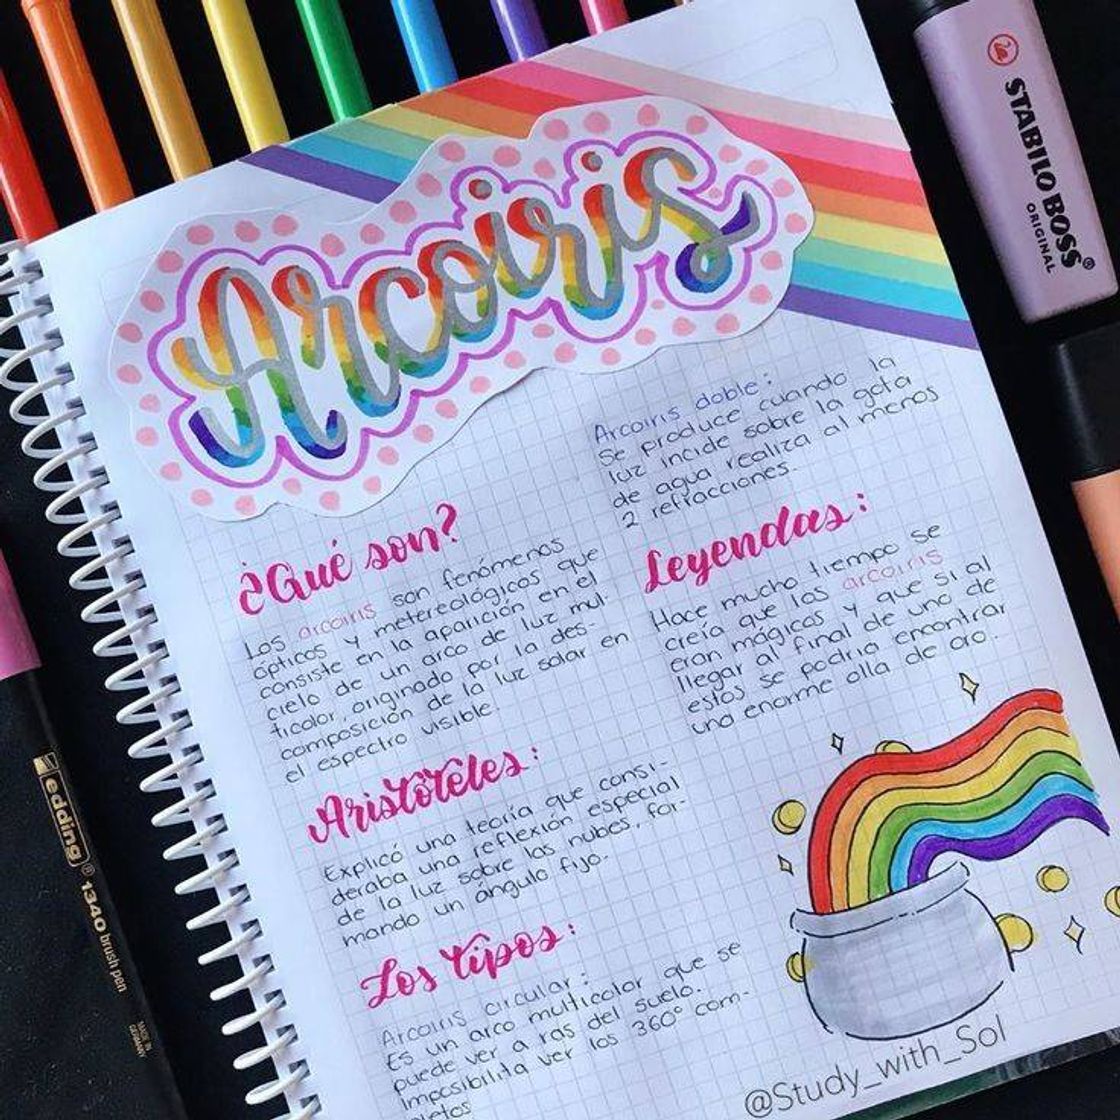 Arcoiris
¿Qué son?
Los arcoiris son fenómenos
ópticos y metereológicos que
consiste en la aparición en el
cielo de un arco de luz mul-
ticolor, originado por la des-
composición de la luz solar en
el espectro visible.
Aristóteles:
Explicó una teoría que consi-
deraba una reflexión especial
de la luz sobre las nubes, for-
mando un ángulo fijo.
Los tipos:
Arcoiris circular:
Es un arco multicolor que se
puede ver a ras del suelo.
Imposibilita ver los 360° com-
pletos
Arcoiris doble:
Se produce cuando la
luz incide sobre la gota
de agua realiza al menos
2 refracciones.
Leyendas:
Hace mucho tiempo se
creía que los arcoiris
eran mágicos y que si al
llegar al final de uno de
estos se podría encontrar
una enorme olla de oro.
@Study_with_Sol
STABILO BOSS®
ORIGINAL
edding® 1340 brush pen
MADE IN
GERMANY